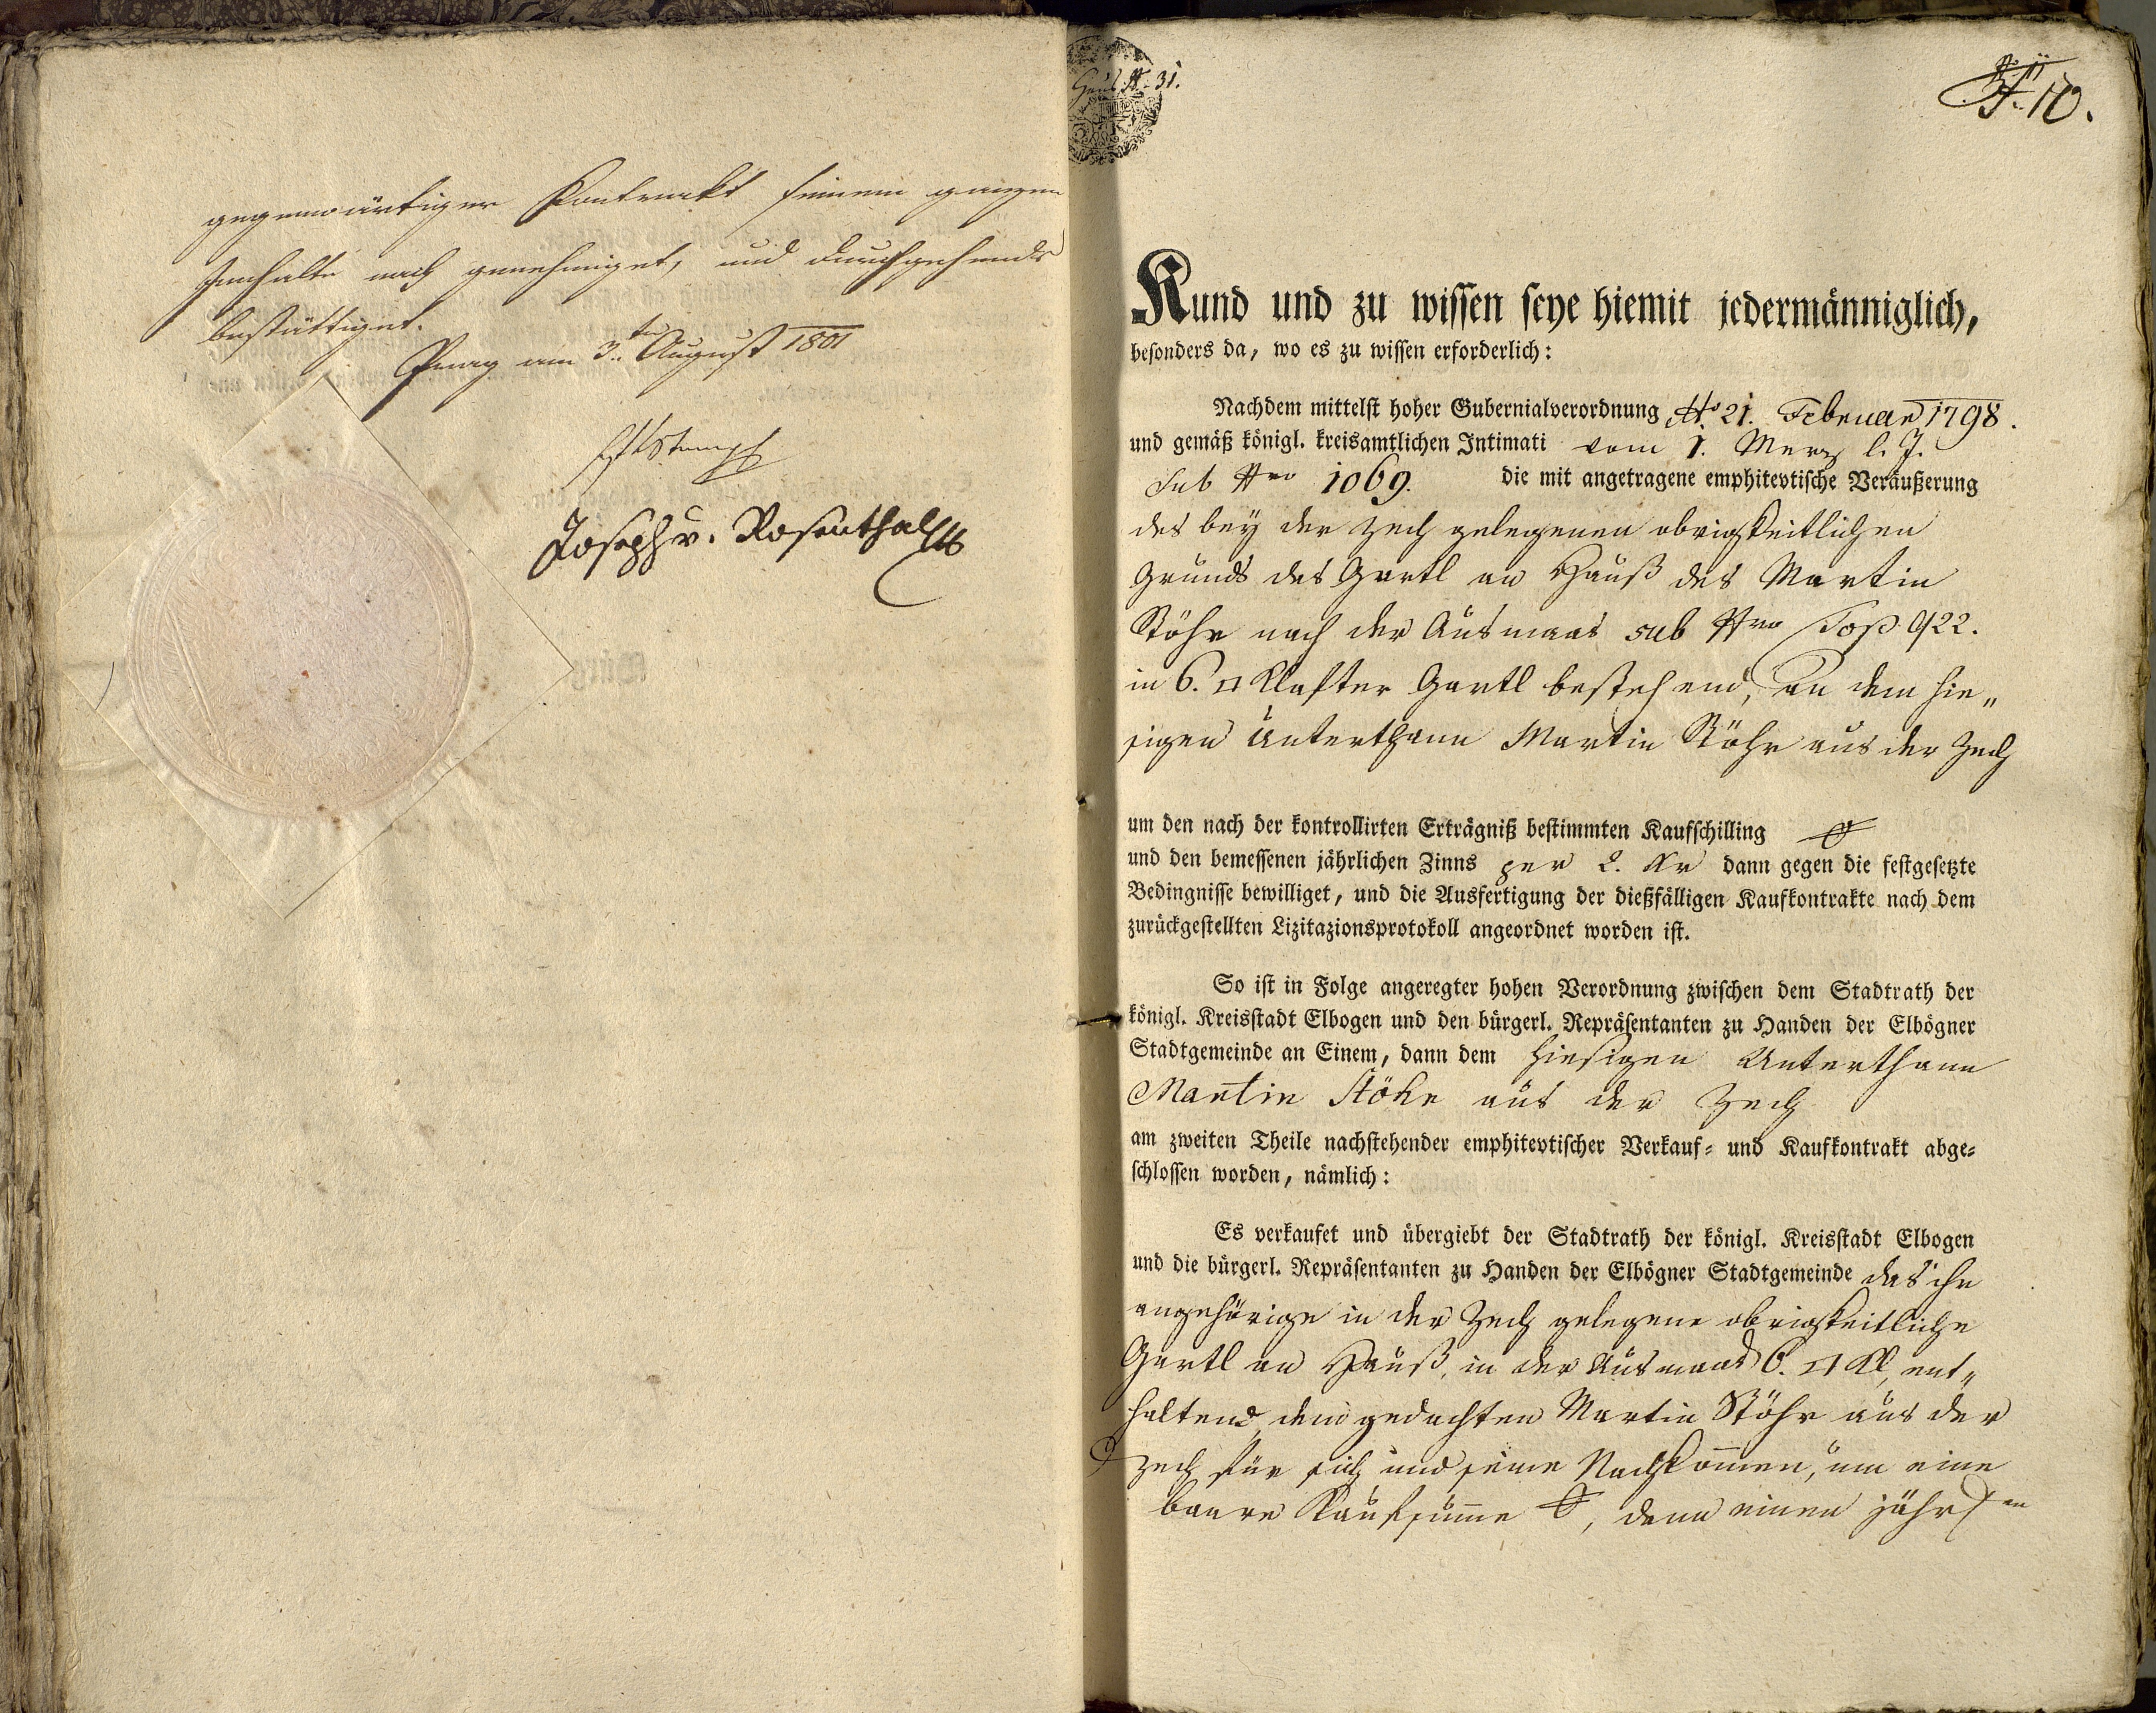 gegenwärtiger Kontrackt seinem ganzen
Innhalte nach genehmiget, und durchgehends
bestättiget.
Prag am 3ten August 1801
Joseph v. Rosenthal
Haus N. 31.
N. 10.
Kund und zu wissen seye hiemit jedermänniglich,
besonders da, wo es zu wissen erforderlich:
Nachdem mittelst hoher Gubernialverordnung dto 21. Februar 1798.
und gemäß königl. kreisamtlichen Intimati vom 1. Merz l. J.
sub Nro 1069. die mit angetragene emphitevtische Veräußerung
des bey der Zech gelegenen obrigkeitlichen
Grunds des Gartl an Hauß des Martin
Stöhr nach der Ausmaas sub Nro Top. 922.
in 6. □ Klafter Gartl bestehend, an dem hie„
sigen Unterthann Martin Stöhr aus der Zech
um den nach der kontrollirten Erträgniß bestimmten Kaufschilling
und den bemessenen jährlichen Zinns per 2. Kr dann gegen die festgesetzte
Bedingnisse bewilliget, und die Ausfertigung der dießfälligen Kaufkontrakte nach dem
zurückgestellten Lizitazionsprotokoll angeordnet worden ist.
So ist in Folge angeregter hohen Verordnung zwischen dem Stadtrath der
königl. Kreisstadt Elbogen und den bürgerl. Repräsentanten zu Handen der Elbögner
Stadtgemeinde an Einem, dann dem hiesigen Unterthann
Martin Stöhr aus der Zech
am zweiten Theile nachstehender emphitevtischer Verkauf- und Kaufkontrakt abge-
schlossen worden, nämlich:
Es verkaufet und übergiebt der Stadtrath der königl. Kreisstadt Elbogen
und die bürgerl. Repräsentanten zu Handen der Elbögner Stadtgemeinde das ihr
angehörige in der Zech gelegene obrigkeitliche
Gartl an Hauß, in der Ausmaas 6. □ Kl, ent„
haltend dem gedachten Martin Stöhr aus der
Zech für sich und seine Nachkom̄en, um eine
baare Kaufsum̄e, dann einen jährlen